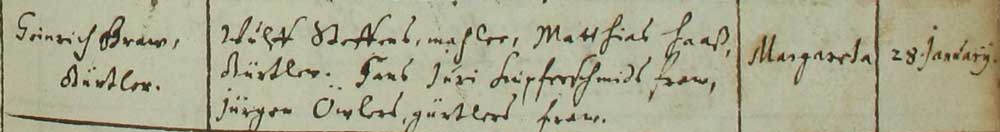 Heinrich Braw,
Kürtler.
Wulff Steffens, mahler, Matthias Haaß,
Kürtler. Hans Juri Kupferschmids fraw,
Jürgen Öwlers, gürtlers fraw.
Margareta
28. January.